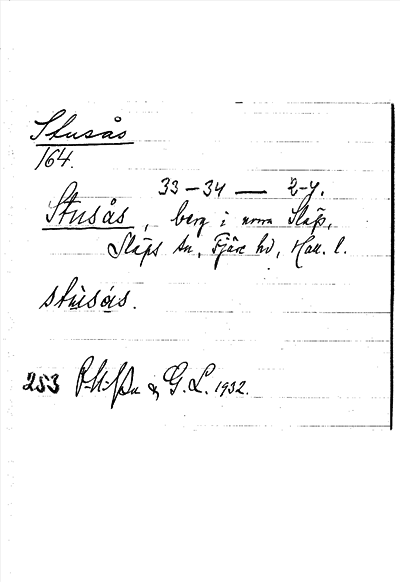 Stusås
164.
33 – 34 — 2-4.
Stusås, berg i norra Släp,
Släps sn, Fjäre hd, Hall. l.
stùsås.
253 & G. L. 1932.